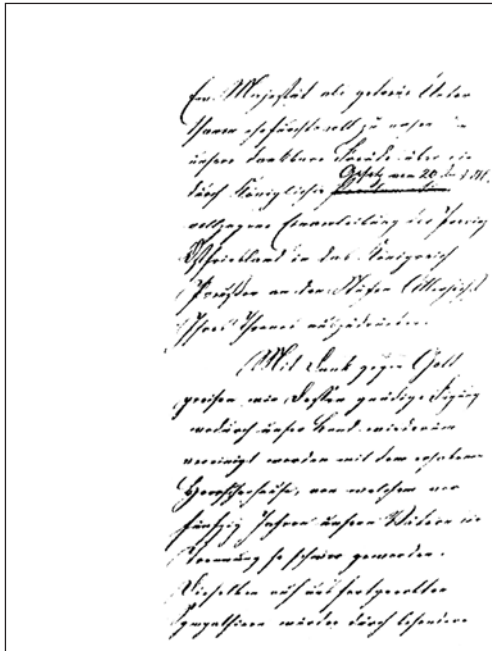 Ew. Majestät als getreue Unter
thanen ehrfurchtsvoll zu nahen
unsere dankbare Freude über die
Gesetz vom 20. d. Mt.
durch Königliches Proclamation
vollzogene Einverleibung der Provinz
Ostfriesland in das Königreich
Preußen an den Stufen Allerhöchst
Ihres Thrones auszudrücken.
Mit Dank gegen Gott
preisen wir dessen gnädige Fügung
wodurch unser Land wiederum
vereinigt worden mit dem erhabenen
Herrscherhause, von welchem vor
fünfzig Jahren unsern Vätern die
Trennung so schwer geworden.
Dieselben auf uns fortgeerbten
Sympathieen würden durch besondere